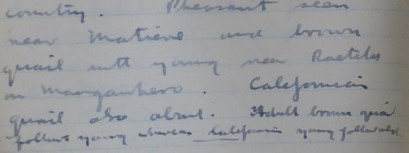 country. Pheasant seen
near Matiere and brown
quail with young near Raetihi
on Mangawhero. Californian
quail also about. Adult brown quail
follows young whereas Californian young follow ad.